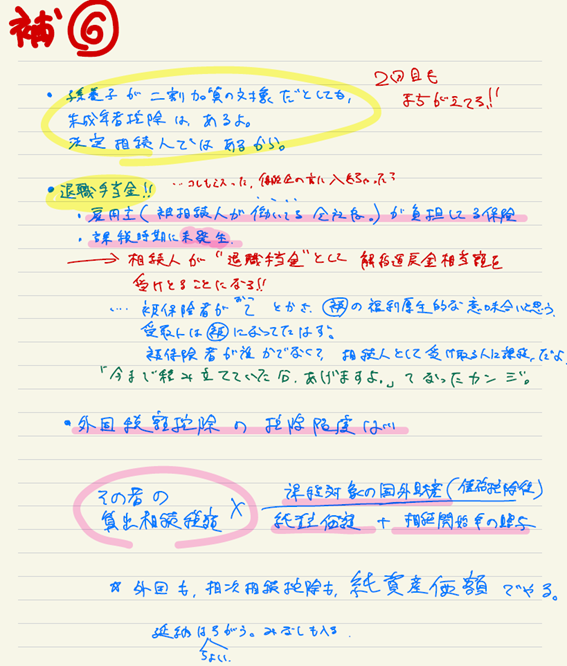 補⑥
・孫養子が二割加算の対象だとしても、
未成年者控除は、あるよ。
法定相続人ではあるから。
2回目も
まちがえてる!!
・退職手当金!!
…コレもらった、
・雇用主(被相続人が働いてる会社など)が負担してる保険
・課税時期に未発生.
→相続人が"退職手当金"として解約返戻金相当額を
受けとることになる!!
…被保険者が とかさ、㊙の福利厚生的な意味合いと思う
受取人は になってたはず。
被保険者が誰かでなくて、相続人として受け取る人に課税、だよ
「今まで積み立てていた分、あげますよ。」てなったカンジ。
・外国税額控除の控除限度は…
その者の
算出相続税額
×
課税対象の国外財産(債務控除後)
純資産価額 + 相続開始年の贈与
☆外国も、相次相続控除も、純資産価額でやる。
延納はちがう。みなしも入る.